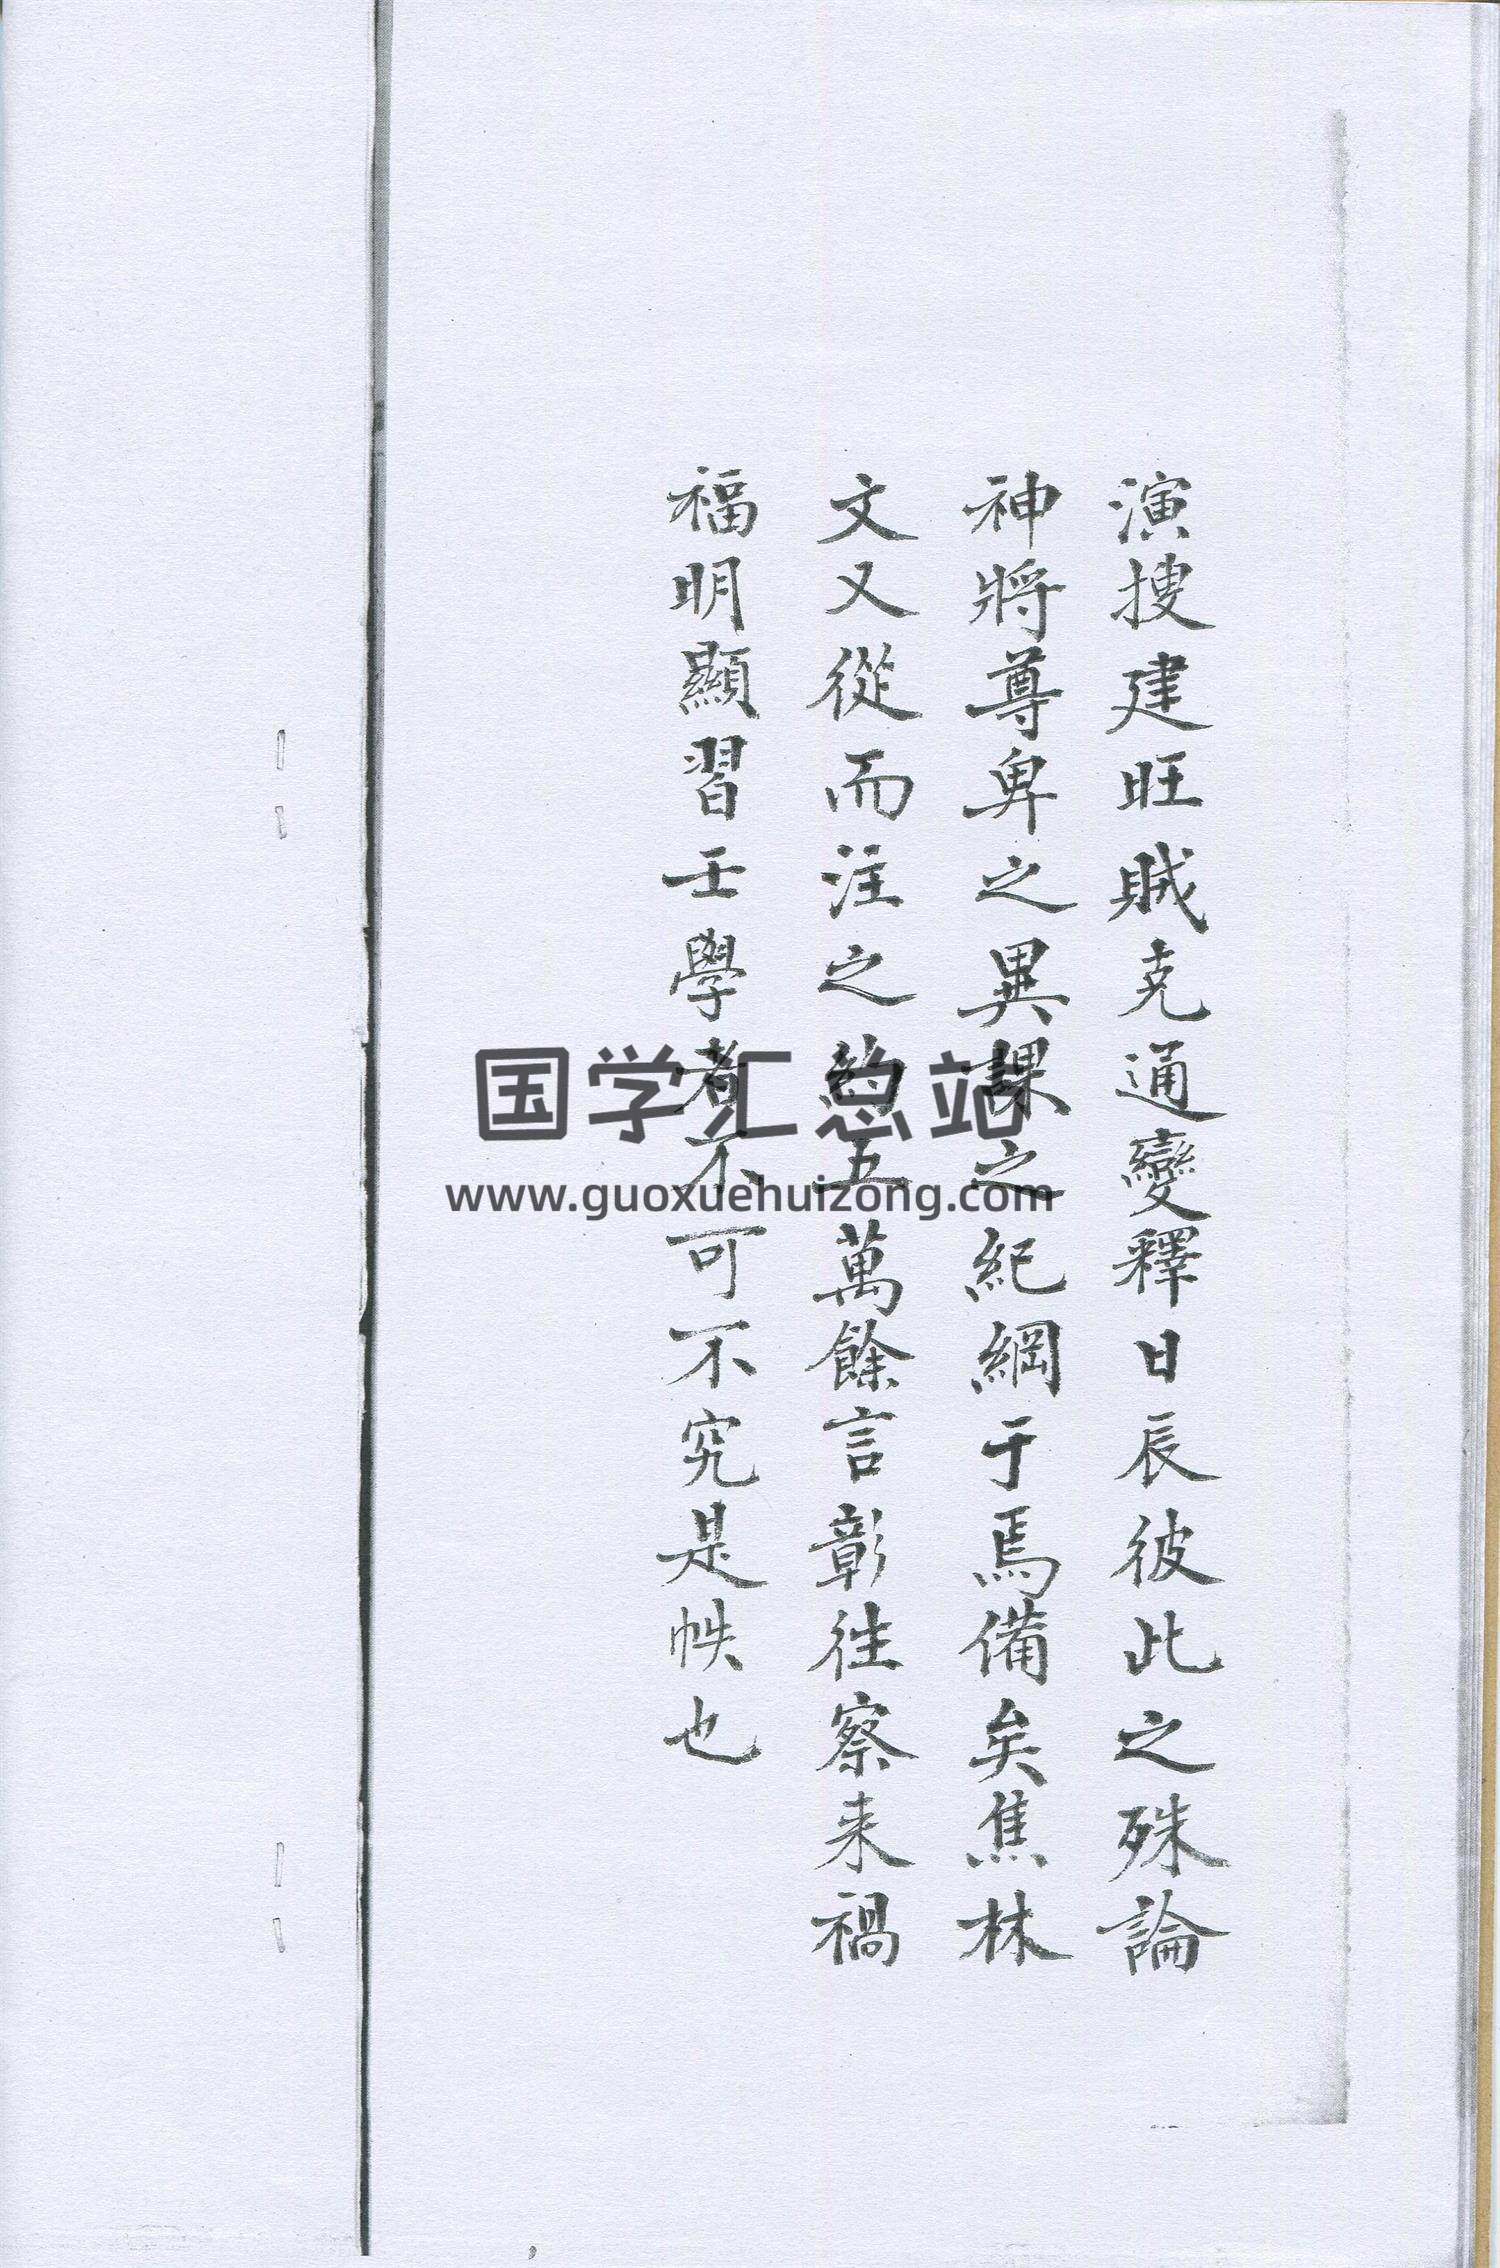 演搜建旺賊克通變釋日辰彼此之殊論
神將尊卑之異課之紀綱于焉備矣焦林
文又從而注之約五萬餘言彰往察来禍
福明顯習壬學者不可不究是帙也
国学汇总站
www.guoxuehuizong.com